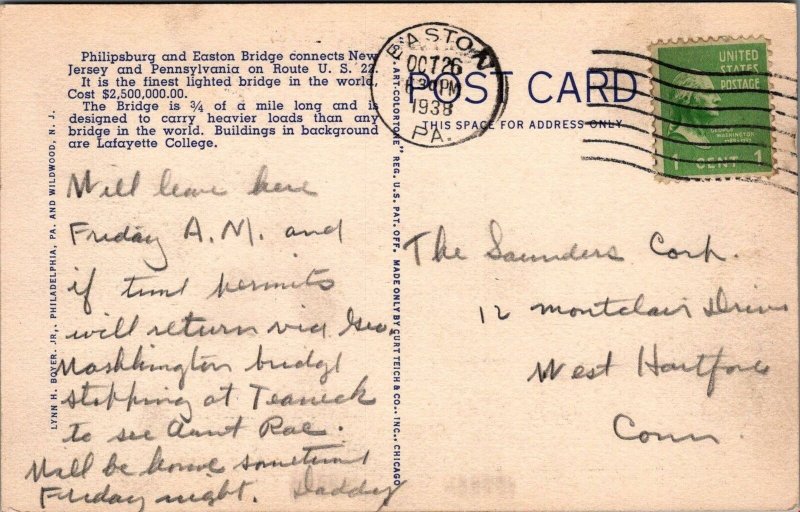 Philipsburg and Easton Bridge connects New
Jersey and Pennsylvania on Route U. S. 22.
It is the finest lighted bridge in the world.
Cost $2,500,000.00.
The Bridge is ¾ of a mile long and is
designed to carry heavier loads than any
bridge in the world. Buildings in background
are Lafayette College.
LYNN H. BOYER, JR., PHILADELPHIA, PA. AND WILDWOOD, N. J.
"ART-COLORTONE" REG. U.S. PAT. OFF. MADE ONLY BY CURT TEICH & CO., INC., CHICAGO
EASTON
OCT 26
30 PM
1938
PA.
POST CARD
THIS SPACE FOR ADDRESS ONLY
UNITED
STATES
POSTAGE
GEORGE
WASHINGTON
1 CENT 1
Will leave here
Friday A.M. and
if time permits
will return via Geo.
Washington bridge
stopping at Teaneck
to see Aunt Rae.
Will be home sometime
Friday night. Daddy
The Saunders Corp.
12 Montclair Drive
West Hartford
Conn.